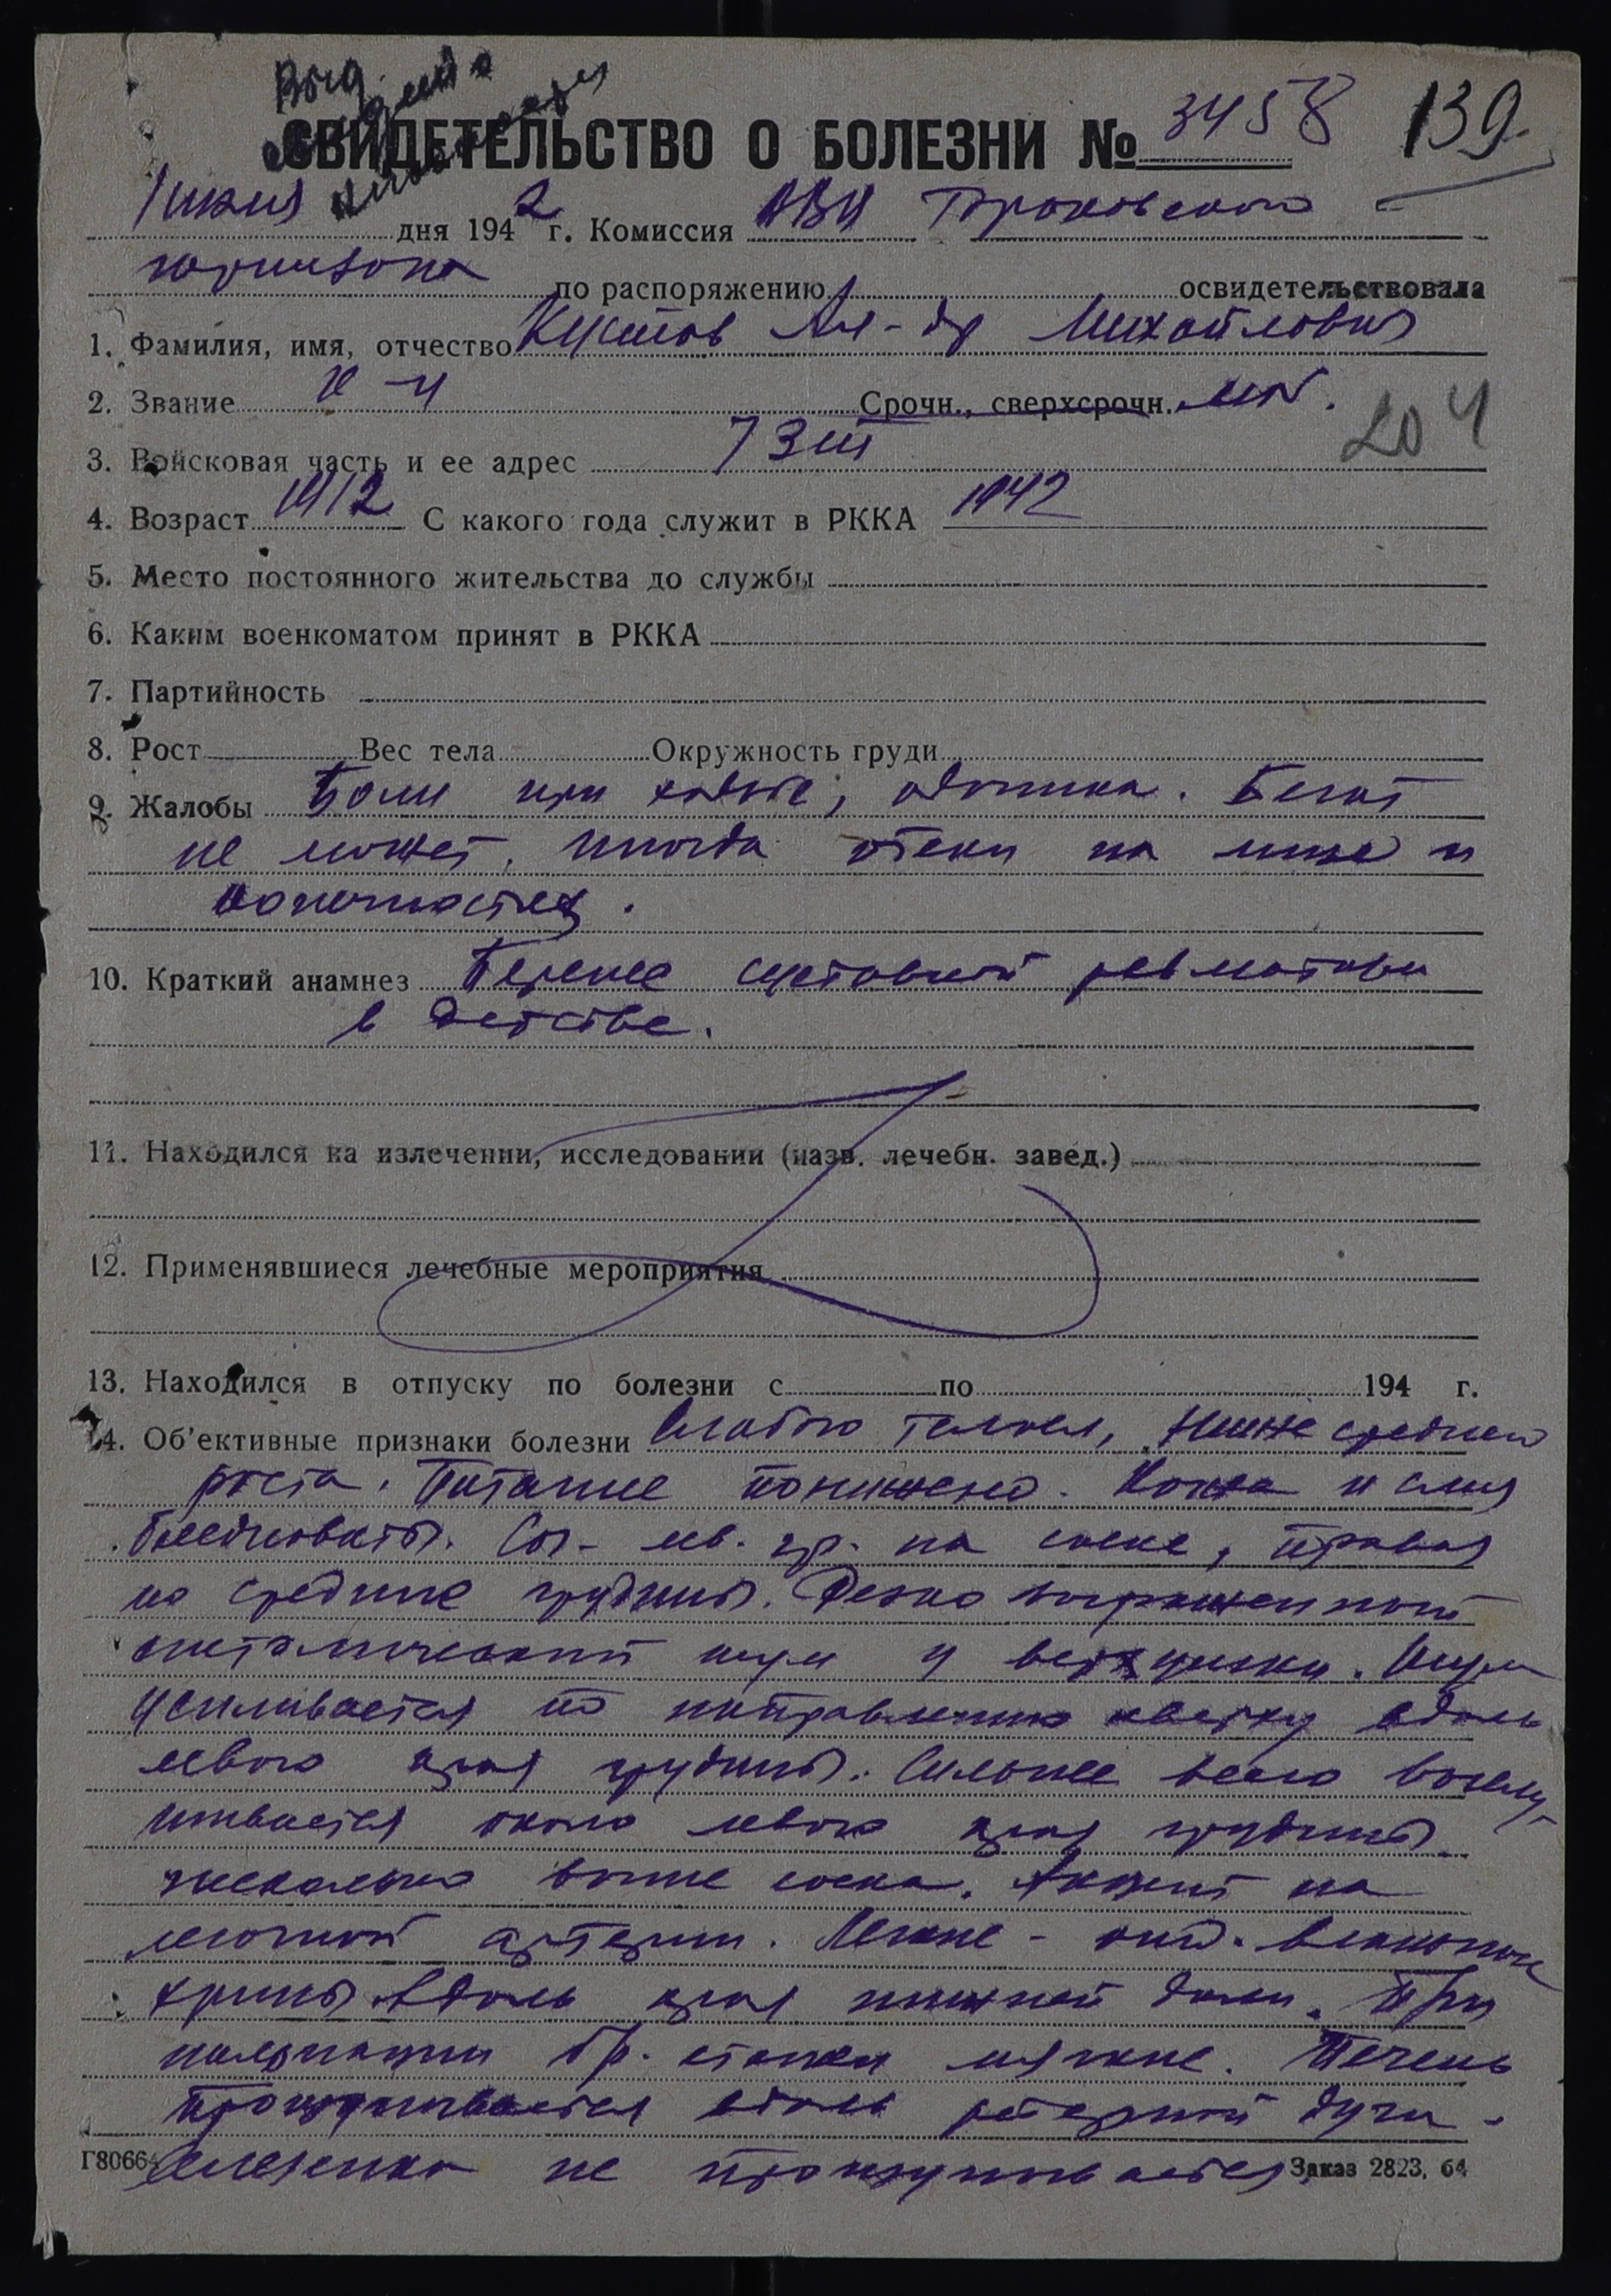 СВИДЕТЕЛЬСТВО О БОЛЕЗНИ № 3458 139
дня 1942 г. Комиссия Гороховского
гарнизона по распоряжению освидетельствовала
1. Фамилия, имя, отчество Кустов Ал-др Михайлович
2. Звание к-ц Срочн., сверхсрочн.
204
3. Войсковая часть и ее адрес 7 ЗП
4. Возраст 1912 С какого года служит в РККА 1942
5. Место постоянного жительства до службы
6. Каким военкоматом принят в РККА
7. Партийность
8. Рост Вес тела Окружность груди
9. Жалобы Боли при ходьбе, одышка. Бегать
не может. Иногда отеки на лице и
конечностях.
10. Краткий анамнез Перенес суставной ревматизм
в детстве.
11. Находился на излечении, исследовании (назв. лечебн. завед.)
12. Применявшиеся лечебные мероприятия
13. Находился в отпуску по болезни с по 194 г.
14. Об'ективные признаки болезни Слабого телосл, ниже среднего
роста. Питание понижено. Кожа и слиз
бледноваты. Сог- лев. гр. на соске, правая
по средине грудины. Резко выраженный
систолический шум у верхушки. Шум
усиливается по направлению кверху вдоль
левого края грудины. Сильнее всего выслу-
шивается около левого края грудины
несколько выше соска. Акцент на
легочной артерии. Легкие -
хрипы вдоль края нижней доли. При
пальпации бр. стенки мягкие. Печень
прощупывается вдоль реберной дуги.
Селезенка не прощупывается.
Г80664 Заказ 2823, 64